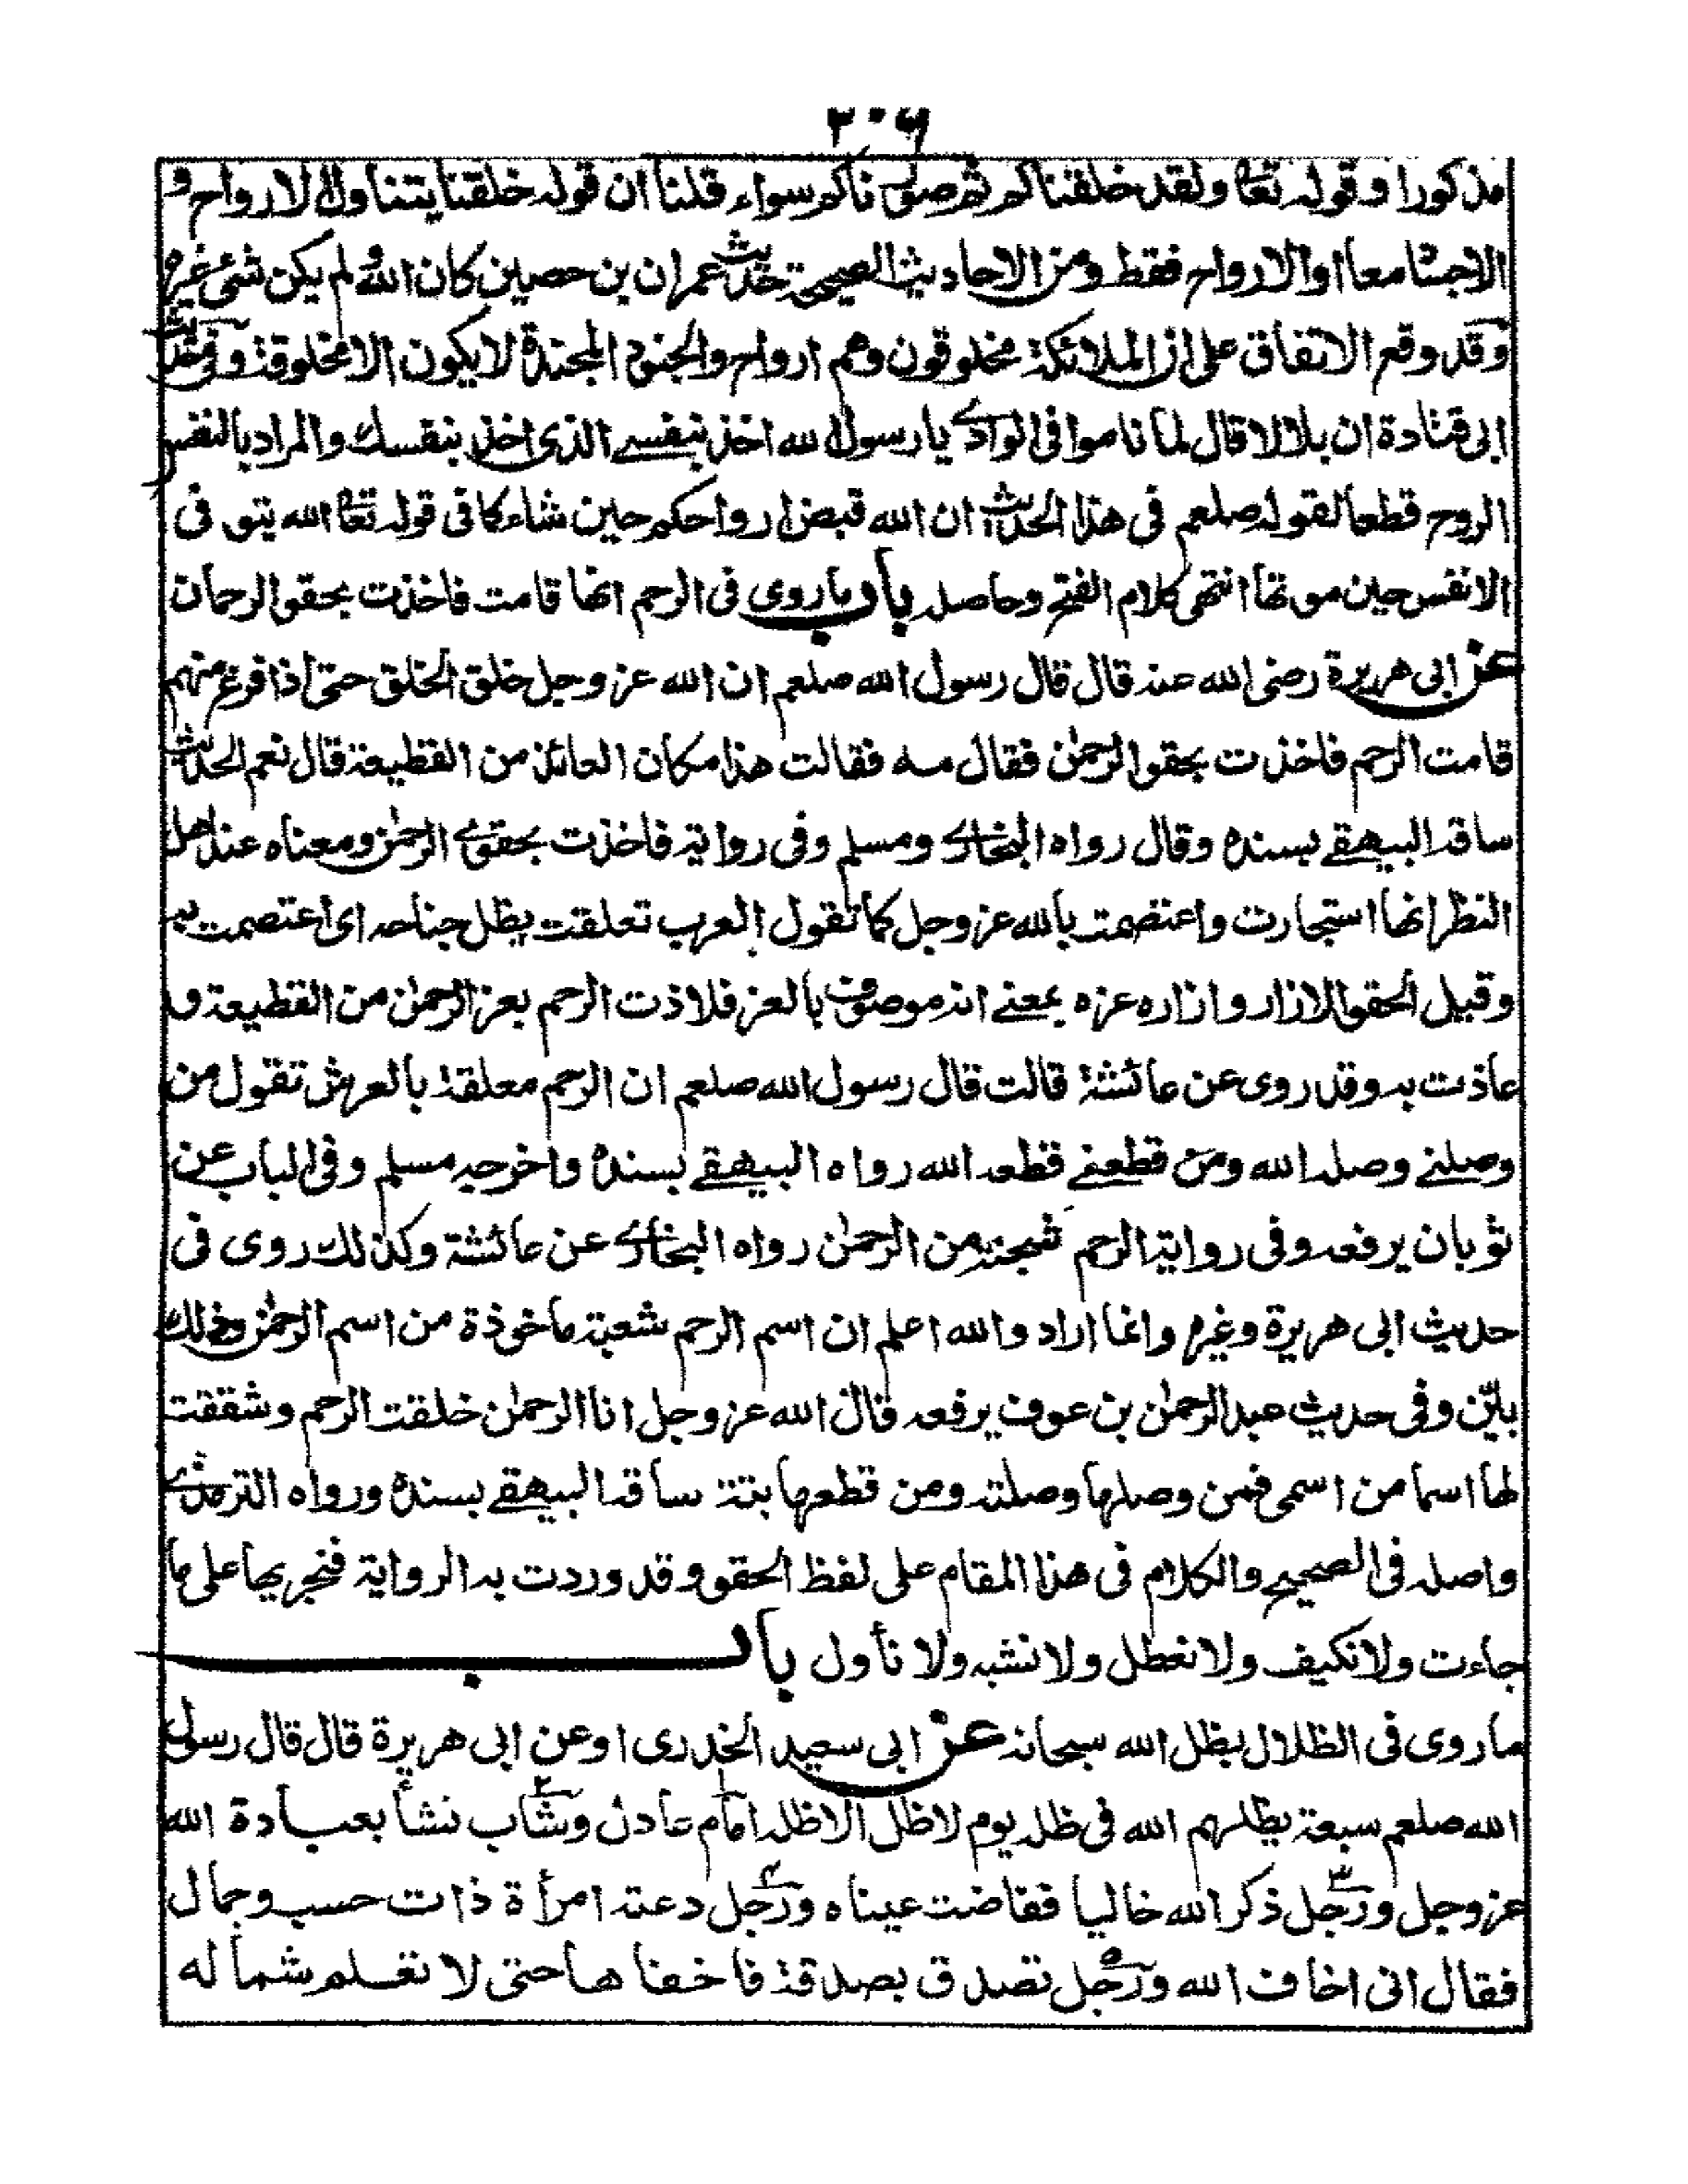 ٢٠٦
مذكورا وقوله تعا ولقد خلقناكم ثم صورناكم سواء قلنا ان قوله خلقنا يتناول الارواح و
الاجسا معا او الارواح فقط ومن الاحاديث الصحيحة حديث عمران بن حصين كان الله ولم يكن شئ غيره
وقد وقع الاتفاق على ان الملائكة مخلوقون وهم ارواح والجنود المجندة لا يكون الا مخلوقة وفى حديث
ابى قتادة ان بلالا قال لما ناموا فى الوادى يا رسول الله اخذ بنفسى الذى اخذ بنفسك والمراد بالنفس
الروح قطعا لقوله صلعم فى هذا الحديث ان الله قبض ارواحكم حين شاء كما فى قوله تعا الله يتوفى
الانفس حين موتها انتهى كلام الفتح وحاصله باب ما روى فى الرحم انها قامت فاخذت بحقو الرحمان
عن ابى هريرة رضى الله عنه قال قال رسول الله صلعم ان الله عز وجل خلق الخلق حتى اذا فرغ منهم
قامت الرحم فاخذت بحقو الرحمٰن فقال مه فقالت هذا مكان العائذ من القطيعة قال نعم الحديث
ساقه البيهقى بسنده وقال رواه البخارى ومسلم وفى رواية فاخذت بحقوى الرحمٰن ومعناه عند اهل
النظر انها استجارت واعتصمت بالله عز وجل كما تقول العرب تعلقت بظل جناحه اى اعتصمت به
وقيل الحقو الازار وازاره عزه بمعنى انه موصوف بالعز فلاذت الرحم بعز الرحمٰن من القطيعة و
عاذت به وقد روى عن عائشة قالت قال رسول الله صلعم ان الرحم معلقة بالعرش تقول من
وصلنى وصله الله ومن قطعنى قطعه الله رواه البيهقى بسنده واخرجه مسلم وفى الباب عن
ثوبان يرفعه وفى رواية الرحم شجنة من الرحمٰن رواه البخارى عن عائشة وكذلك روى فى
حديث ابى هريرة وغيره وانما اراد والله اعلم ان اسم الرحم شعبة ماخوذة من اسم الرحمٰن وذلك
بيّن وفى حديث عبد الرحمٰن بن عوف يرفعه قال الله عز وجل انا الرحمٰن خلقت الرحم وشققت
لها اسما من اسمى فمن وصلها وصلته ومن قطعها بتته ساقه البيهقى بسنده ورواه الترمذى
واصله فى الصحيح والكلام فى هذا المقام على لفظ الحقو وقد وردت به الرواية فنجريها على ما
جاءت ولا نكيف ولا نعطل ولا نشبه ولا نأول باب
ما روى فى الظلال بظل الله سبحانه عن ابى سعيد الخدرى او عن ابى هريرة قال قال رسول
الله صلعم سبعة يظلهم الله فى ظله يوم لا ظل الا ظله امام عادل وشاب نشأ بعبادة الله
عز وجل ورجل ذكر الله خاليا ففاضت عيناه ورجل دعته امرأة ذات حسب وجمال
فقال انى اخاف الله ورجل تصدق بصدقة فاخفاها حتى لا تعلم شماله